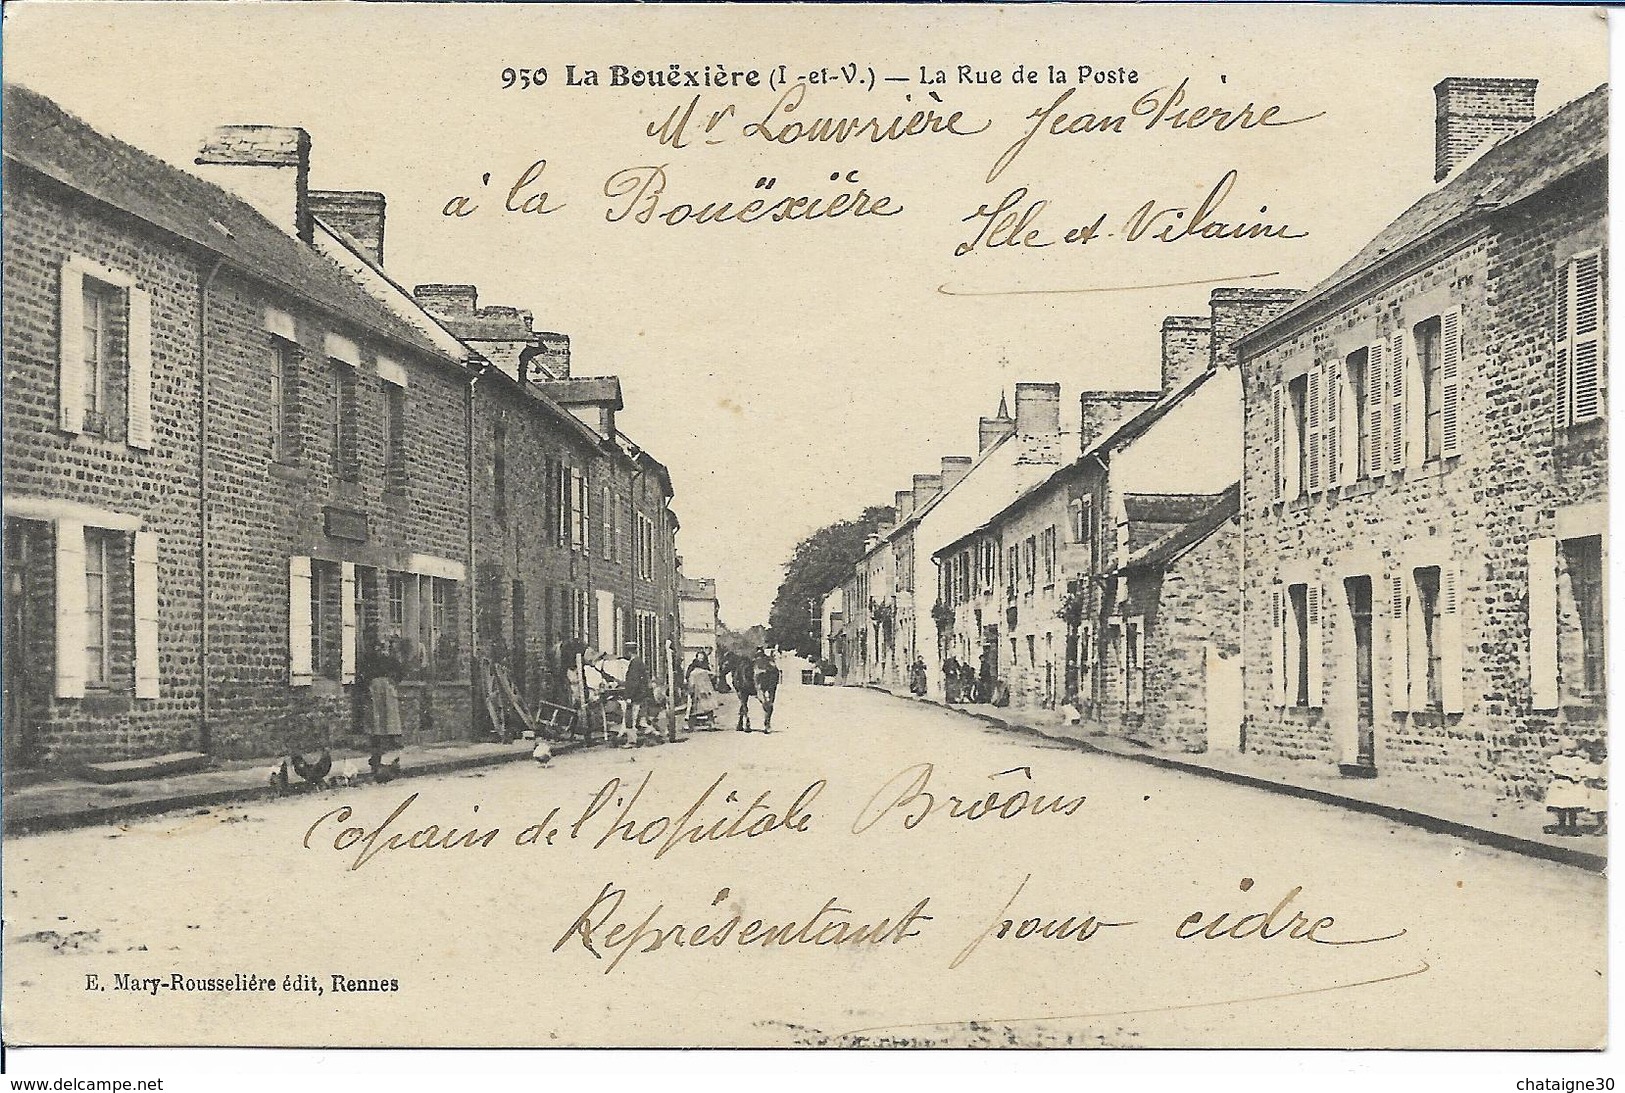 950 La Bouëxière (I-et-V.) — La Rue de la Poste
Mr Louvrière Jean Pierre
à la Bouëxière Ille et Vilaine
Copain de l'hôpitale Brôons
Représentant pour cidre
E. Mary-Rousseliére édit, Rennes
www.delcampe.net
chataigne30